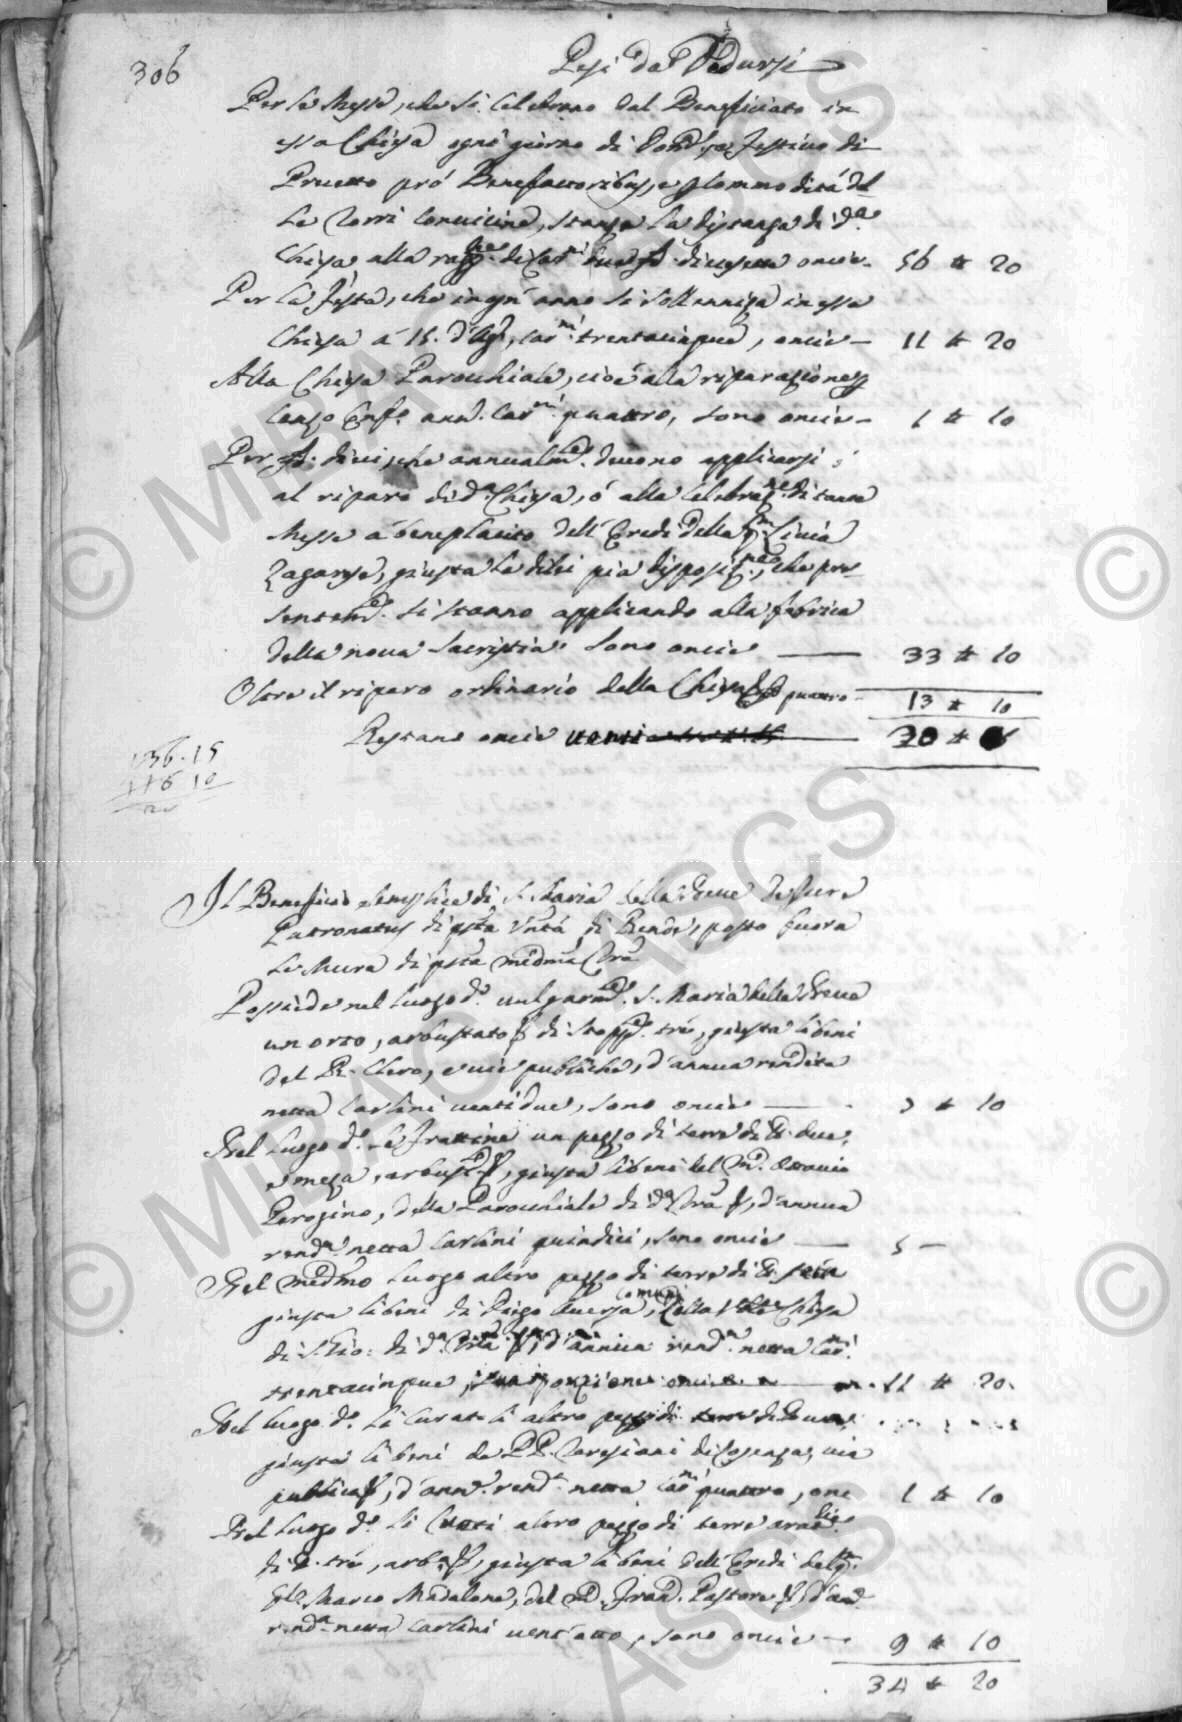 306
Pesi da dedursi
Per le Messe, che si celebrano dal Beneficiato in
essa Chiesa ogni giorno di Dom.ca, e festivo di
Precetto pró Benefactoribus, e commodità del
le Torri convicine, stante la distanza di d.a
Chiesa alla rag.ne di Car.ni due docati diecesette oncie 56 * 20
Per la festa, che in ogn' anno si sollennizza in essa
Chiesa á 15. d'Ag.to, car.ni trentacinque, oncie 11 * 20
Alla Chiesa Parocchiale, cioè alla riparazione
Censo Enf.co ann. Car.ni quattro, sono oncie 1 * 10
Per dieci, che annualm.e devono applicarsi
al riparo di d.a Chiesa, ó alla celebraz.ne di tante
Messe á beneplacito dell' Eredi della q.m Livia
Zagarese, giusta la di lei pia disposiz.ne, che pre-
sentem.e si stanno applicando alla fabrica
della nova Sacristia sono oncie 33 * 10
Oltre il riparo ordinario della Chiesa quattro 13 * 10
Restano oncie venti 20 *
136 . 15
116 10
20
Il Beneficio semplice di S. Maria della Neve de Jure
Patronatus di q.sta Un.tá di Rende, posto fuora
le Mura di q.sta med.ma Terra
Possiede nel luogo d.o vulgarm.e S. Maria della Neve
un orto, arbustato di stopp.te tré, giusta li beni
del R. Clero, e vie publiche, d'annua rendita
netta Carlini venti due, sono oncie 7 * 10
Nel luogo d.o le Frattine un pezzo di terre di due,
e meza, arbust.to, giusta li beni del M.co Ottavio
Perogino, della Parocchiale di d.a Terra, d'annua
rend.a netta Carlini quindici, sono oncie 5 —
Nel med.mo luogo altro pezzo di terre di
giusta li beni di Diego Aversa, comuni colla Chiesa
di S. Gio: di d.a Terra, d'annua rend.a netta Car.ni
trentacinque, sua porzione oncie 11 * 20
Nel luogo d.o li Curateli altro pezzo di terre di
giusta li beni de PP. Teresiani di Cosenza, via
publica, d'ann. rend.a netta Car.ni quattro, onc 1 * 10
Nel luogo d.o li altro pezzo di terre
di tré, arb.to, giusta li beni dell' Eredi del q.m
Marco Madalone, del R.D. Fran.co Pastore, d'ann.
rend.a netta Carlini vent'otto, sono oncie 9 * 10
34 * 20
© MIBAC ASCS
© MIBAC ASCS ©
© MIBAC ASCS ©